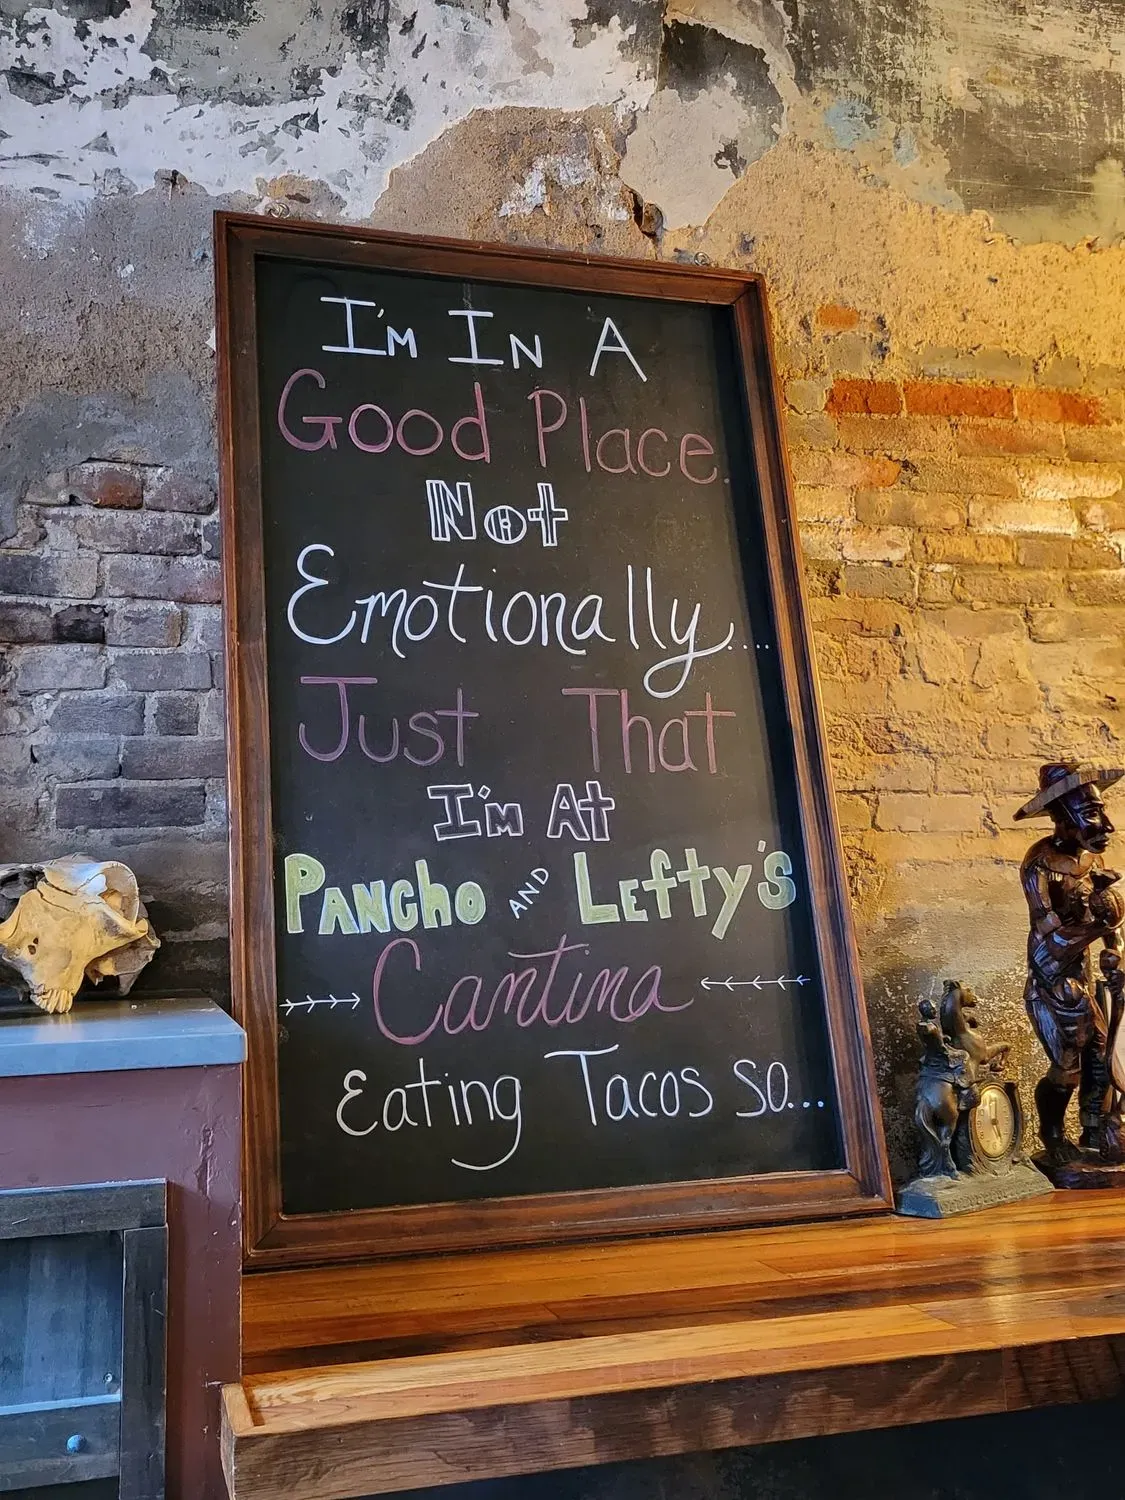 I'm In A
Good Place.
Not
Emotionally....
Just That
I'm At
Pancho and Lefty's
Cantina
Eating Tacos so...